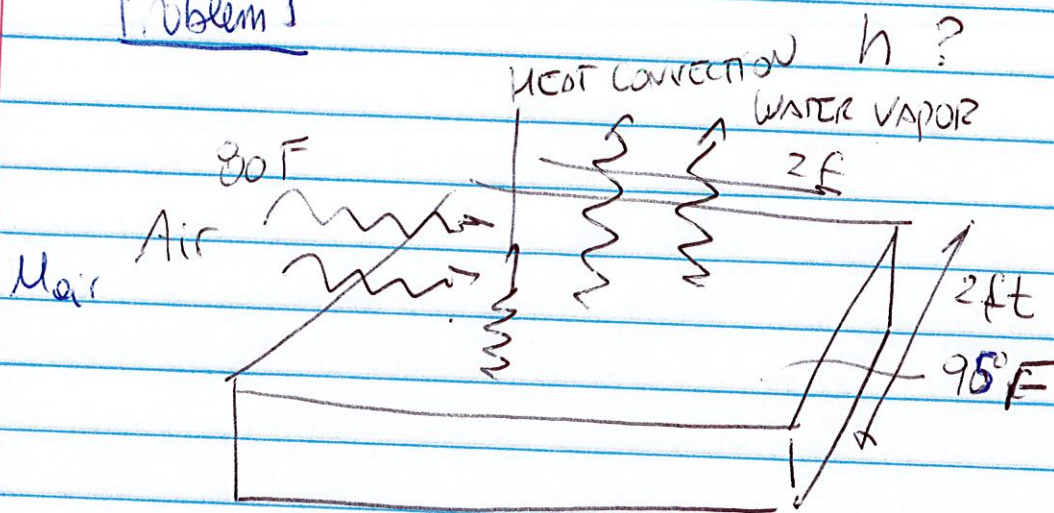 Problem 1
h ?
HEAT CONVECTION
WATER VAPOR
80F
2f
Air
Mair
2ft
95°F